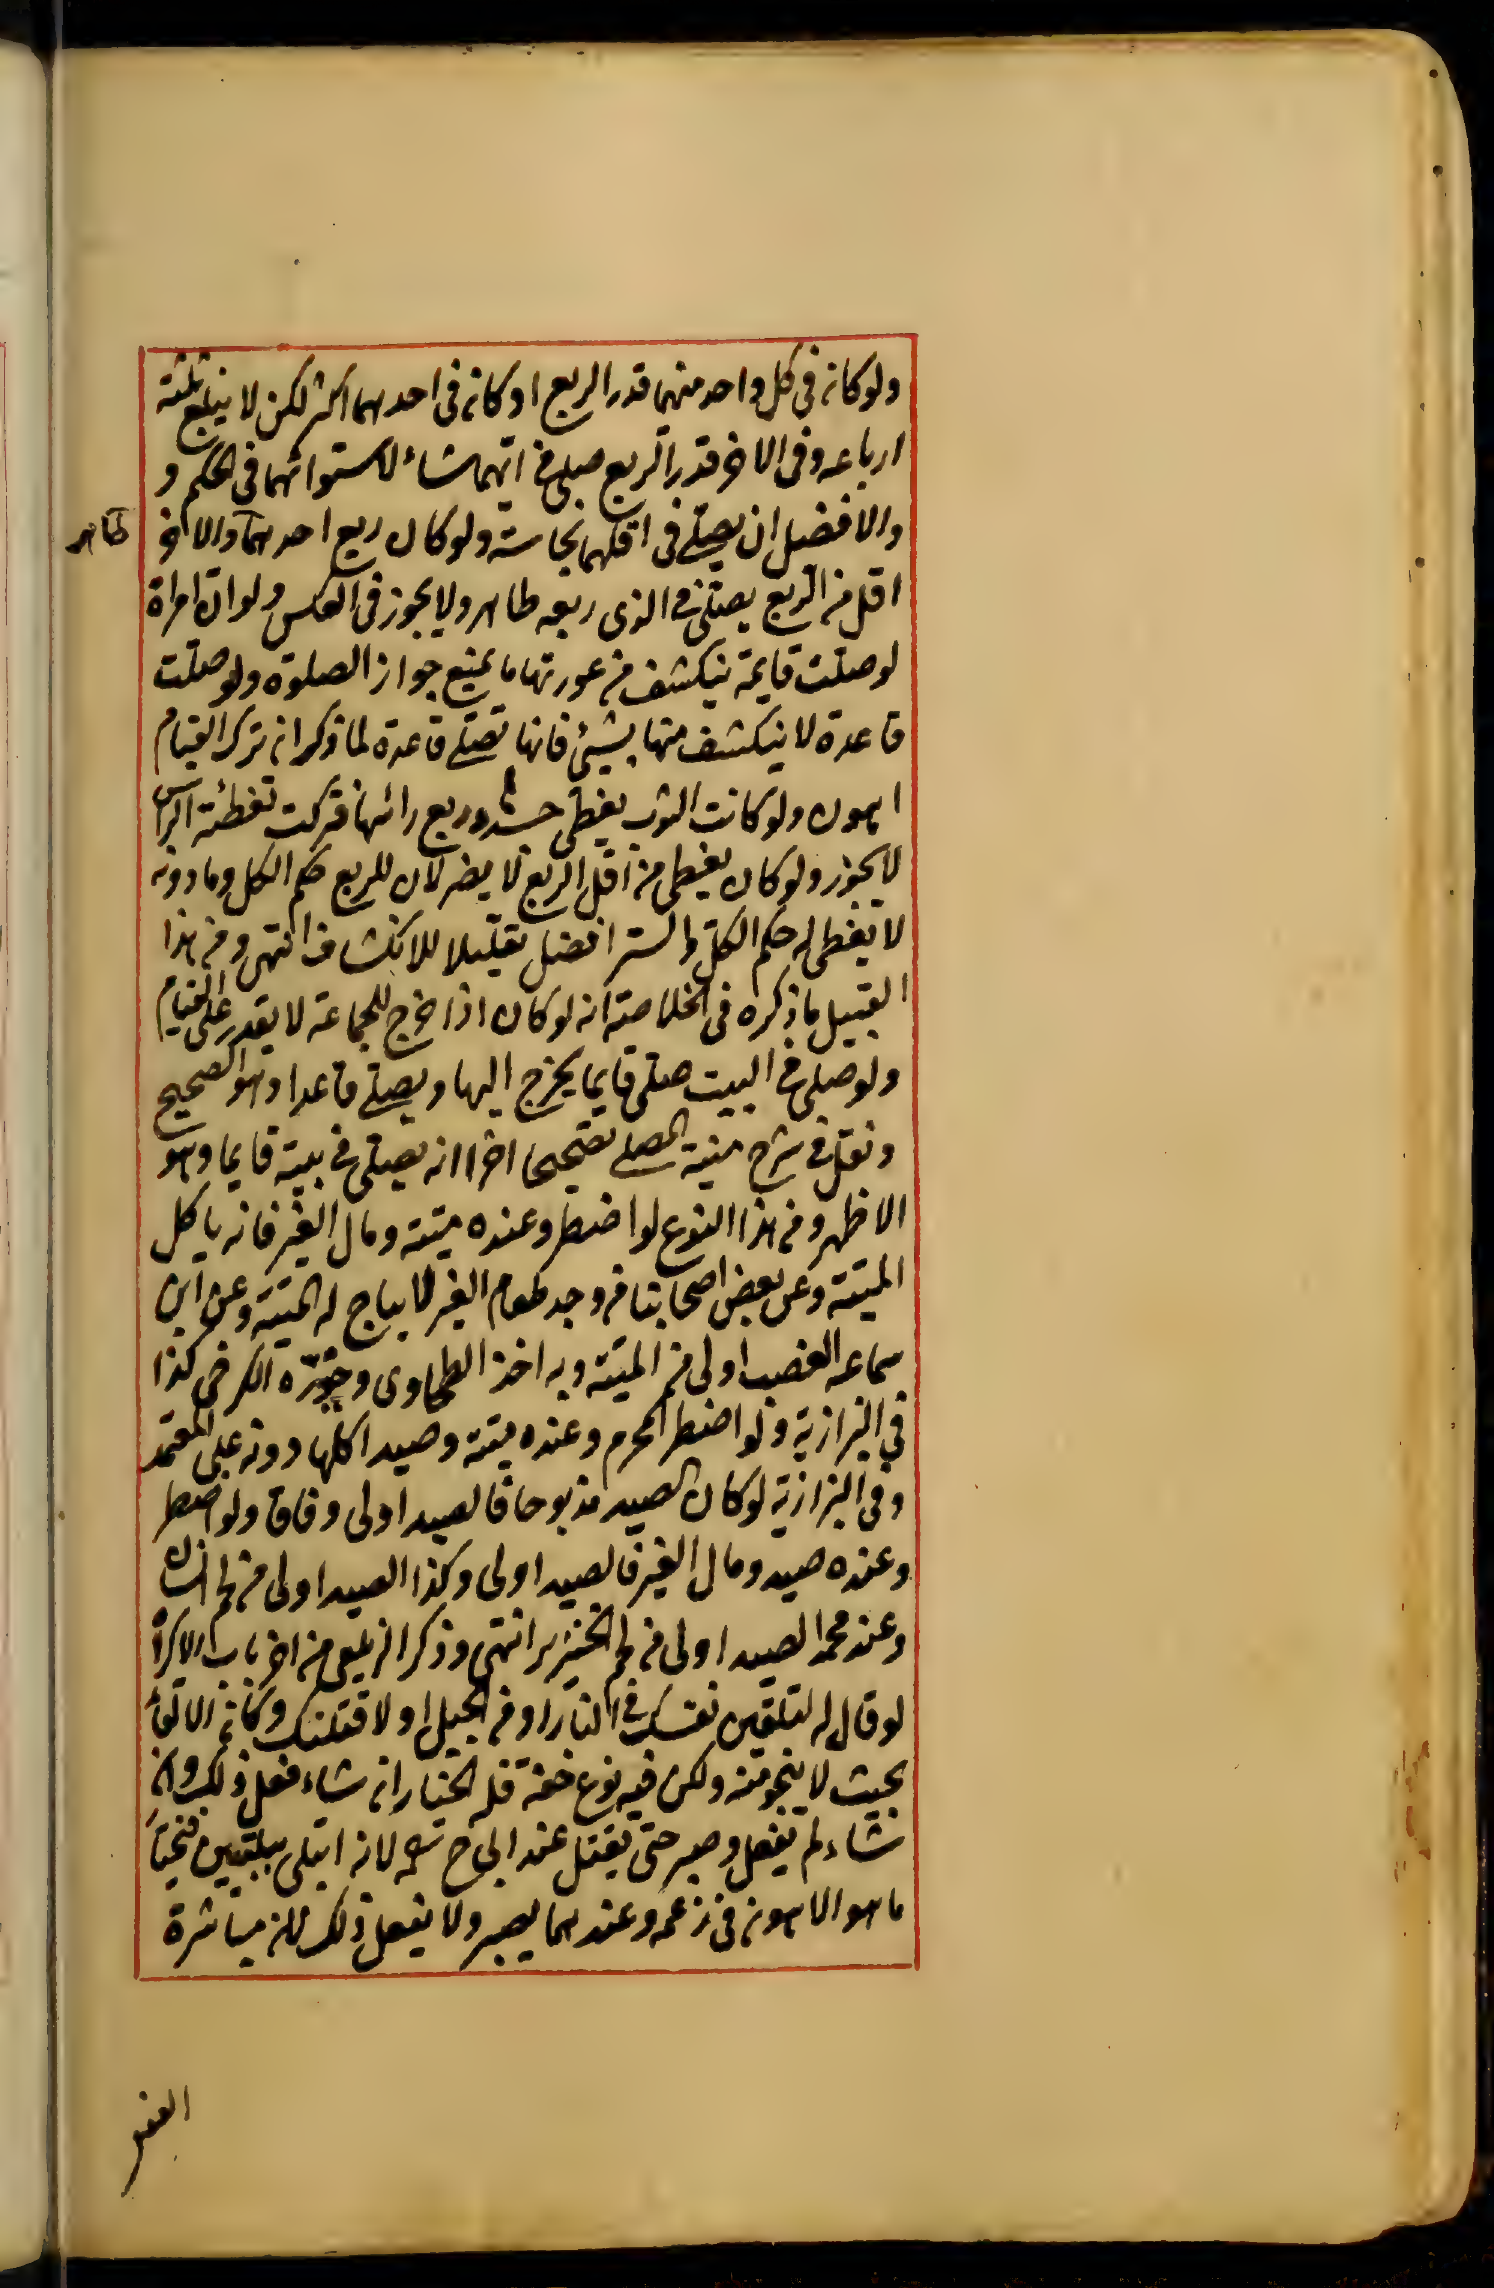 ولو كان في كل واحد منهما قدر الربع او كان في احدهما اكثر لكن لا يبلغ ثلثة
ارباعه وفي الاخر قدر الربع صلى في ايهما شاء لاستوائهما في الحكم و
والافضل ان يصلي في اقلهما نجاسة ولو كان ربع احدهما والاخر
طاهر
اقل من الربع يصلي في الذي ربعه طاهر ولا يجوز في العكس ولو ان امراة
لو صلت قايمة ينكشف من عورتها ما يمنع جواز الصلوة ولو صلت
قاعدة لا ينكشف منها بشيئ فانها تصلي قاعدة لما ذكر ان ترك القيام
اهون ولو كانت الثوب يغطي جسدها وربع رائها فتركت تغطئة الراس
لا يجوز ولو كان يغطي من اقل الربع لا يضر لان للربع حكم الكل وما دونه
لا يغطى له حكم الكل والستر افضل تقليلا للانكشاف انتهى ومن هذا
القبيل ما ذكره في الخلاصة انه لو كان اذا خرج للجماعة لا يقدر على القيام
ولو صلى في البيت صلى قايما يخرج اليها ويصلي قاعدا وهو الصحيح
ونقل في شرح منية المصلي تصحيحا اخرا انه يصلي في بيته قايما وهو
الاظهر ومن هذا النوع لو اضطر وعنده ميتة ومال الغير فانه ياكل
الميتة وعن بعض اصحابنا من وجد طعام الغير لا يباح له الميتة وعن ابن
سماعه الغصب اولى من الميتة وبه اخذ الطحاوى وخيّره الكرخي كذا
في البزازية ولو اضطر المحرم وعنده ميتة وصيد اكلها دونه على المعتمد
وفي البزازية لو كان الصيد مذبوحا فالصيد اولى وفاقا ولو اضطر
وعنده صيد ومال الغير فالصيد اولى وكذا الصيد اولى من لحم انسان
وعند محمد الصيد اولى من لحم الخنزير انتهى وذكر الزيلعي من اخر باب الاكراه
لو قال له لتلقين نفسك في النار او من الجبل او لاقتلنك وكان الالقاء
بحيث لا ينجو منه ولكن فيه نوع خفة فله الخيار ان شاء فعل ذلك وان
شاء لم يفعل وصبر حتى يقتل عند ابي ح لانه ابتلى ببليتين فيختار
ما هو الاهون في زعمه وعندهما يصبر ولا يفعل ذلك لان مباشرة
الفعل